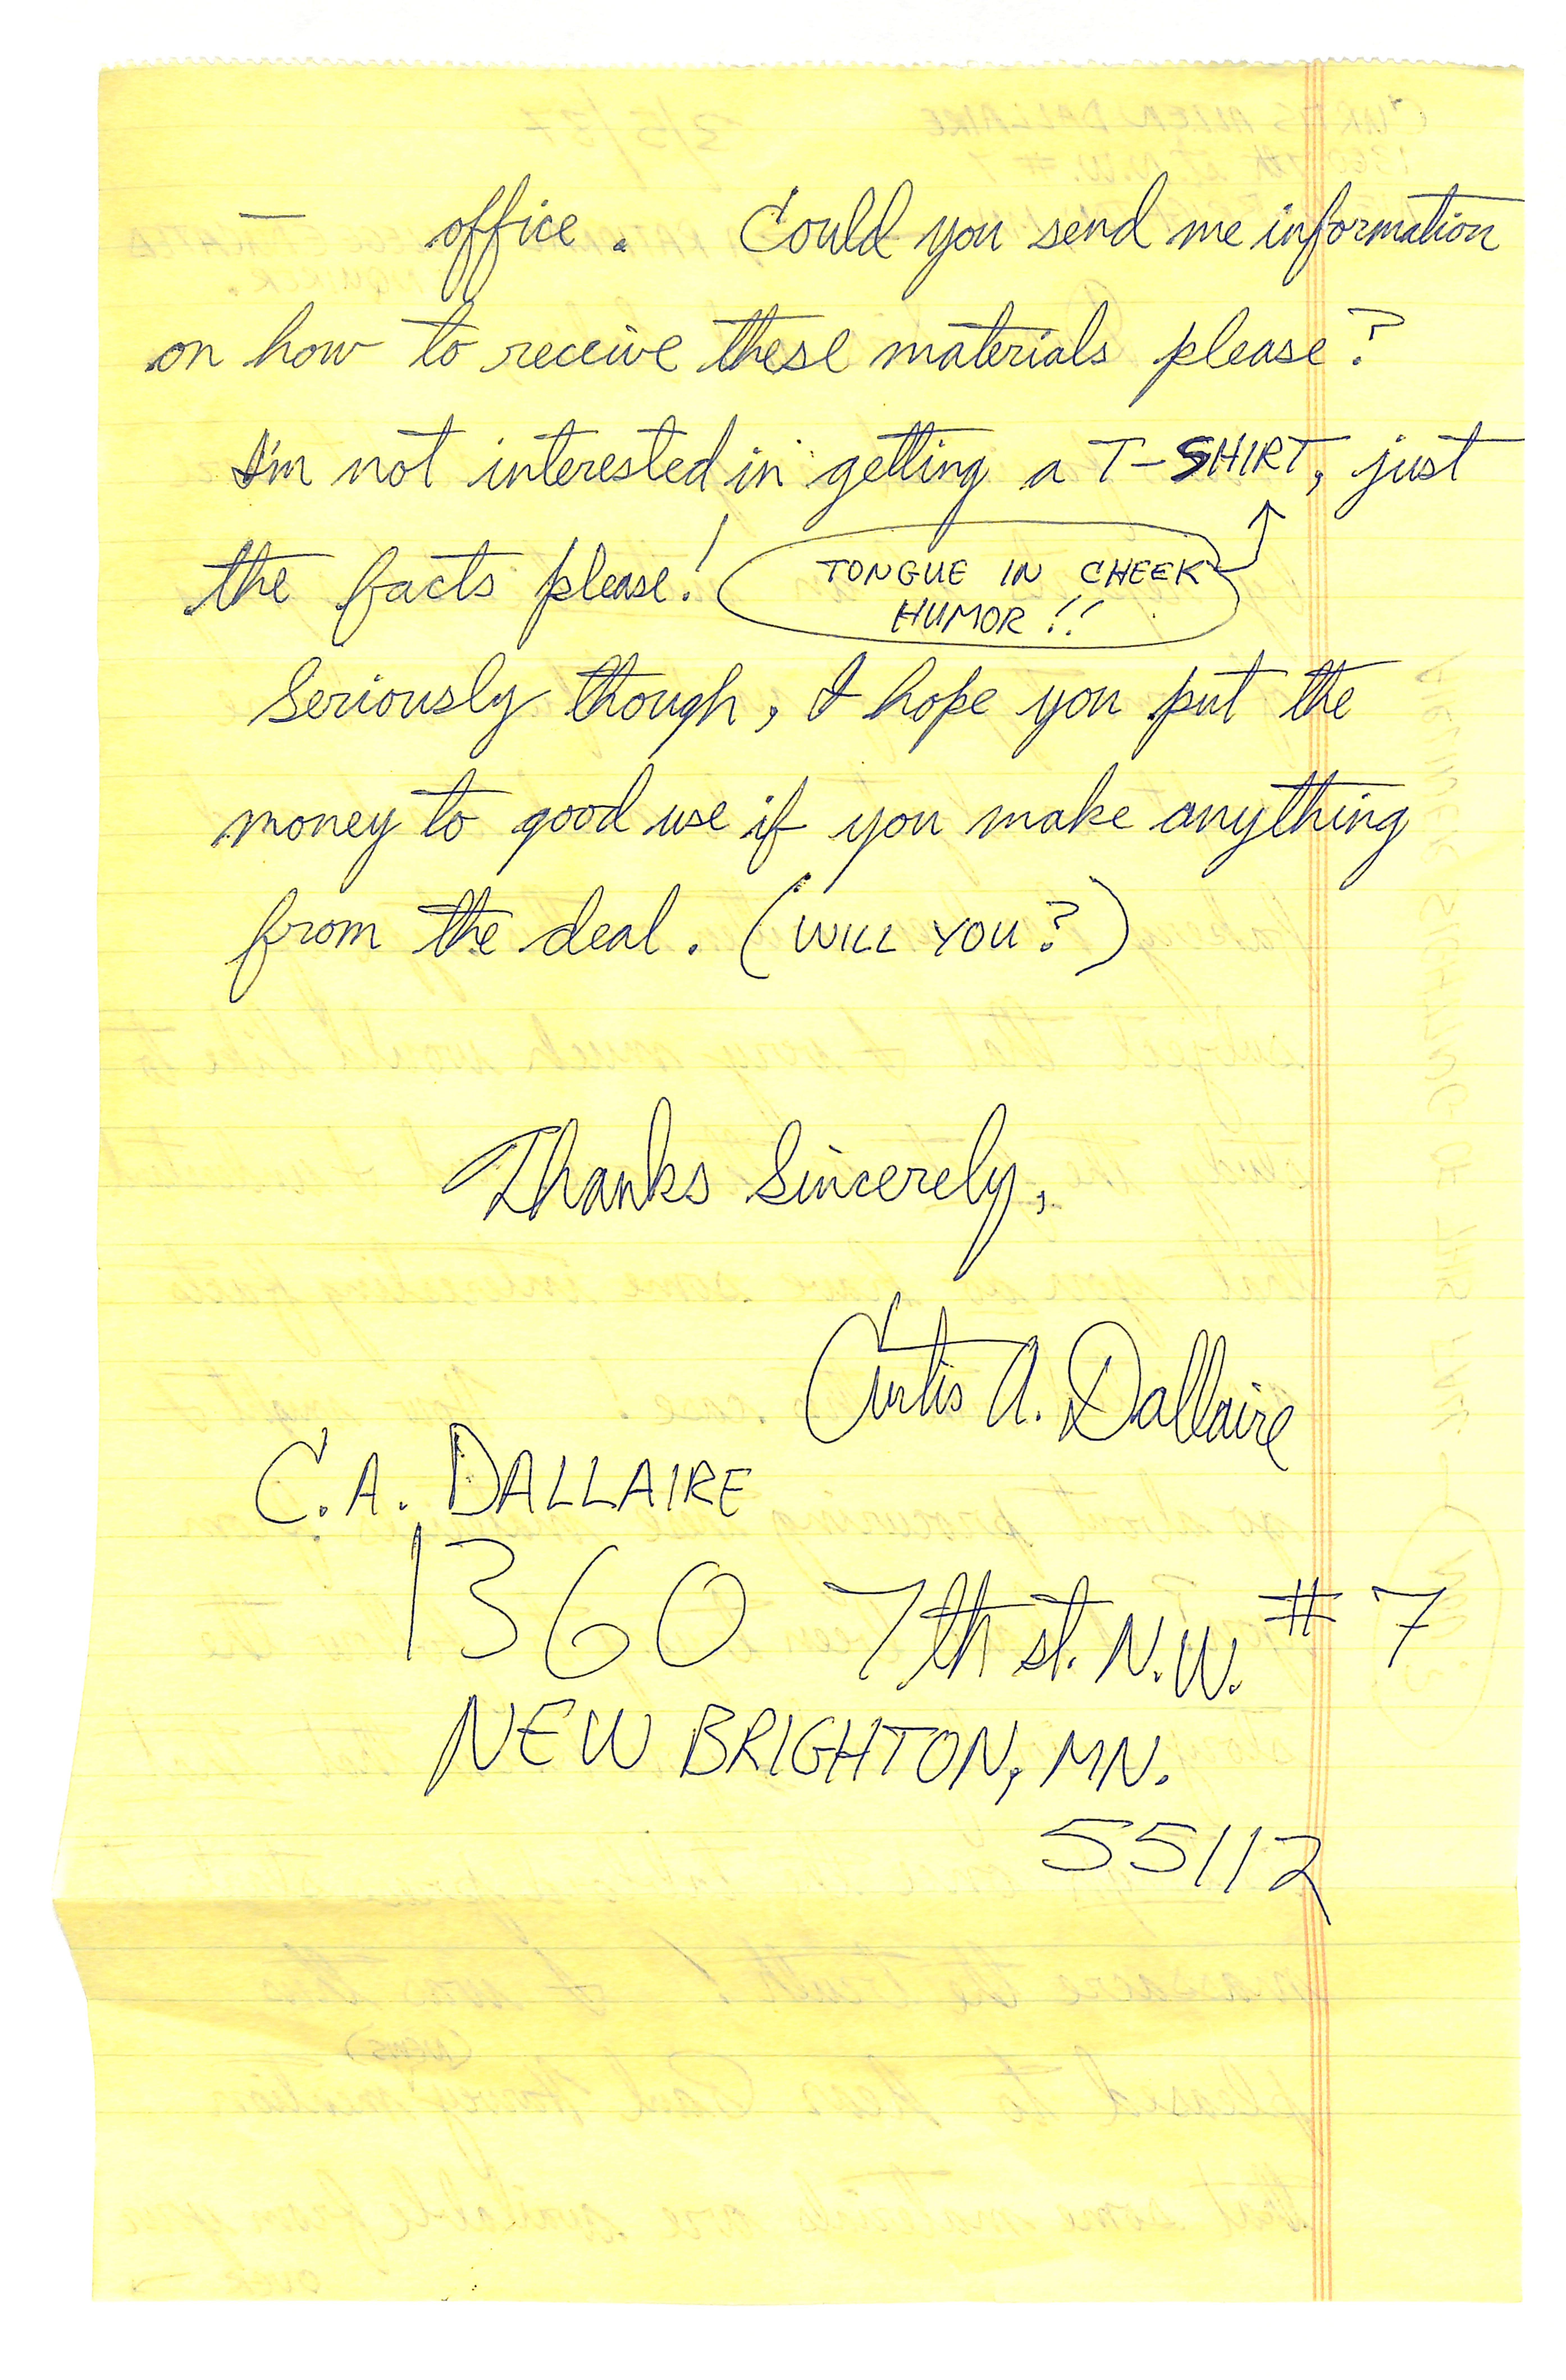 — office. Could you send me information
on how to receive these materials please?
I'm not interested in getting a T-SHIRT, just
the facts please! (TONGUE IN CHEEK
HUMOR!!
Seriously though, I hope you put the
money to good use if you make anything
from the deal. (WILL YOU?)
Thanks Sincerely,
Curtis A. Dallaire
C.A. DALLAIRE
1360 7th st. N.W. # 7
NEW BRIGHTON, MN.
55112